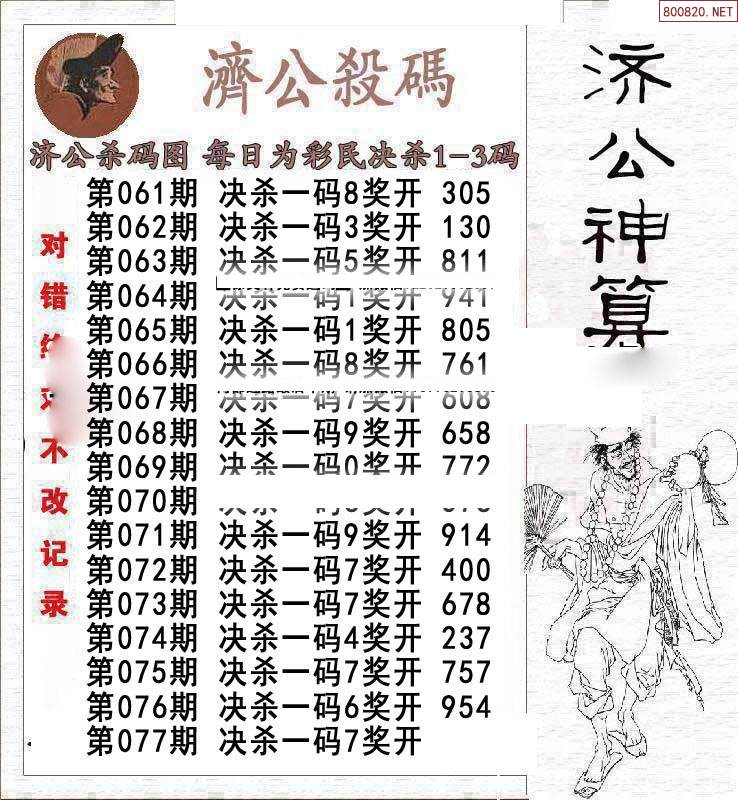 800820.NET
濟公殺碼
济公杀码图 每日为彩民决杀1-3码
第061期 决杀一码8奖开 305
第062期 决杀一码3奖开 130
第063期 决杀一码5奖开 811
第064期 决杀一码1奖开 941
第065期 决杀一码1奖开 805
第066期 决杀一码8奖开 761
第067期 决杀一码7奖开 608
第068期 决杀一码9奖开 658
第069期 决杀一码0奖开 772
第070期
第071期 决杀一码9奖开 914
第072期 决杀一码7奖开 400
第073期 决杀一码7奖开 678
第074期 决杀一码4奖开 237
第075期 决杀一码7奖开 757
第076期 决杀一码6奖开 954
第077期 决杀一码7奖开
对错
不改记录
济公神算